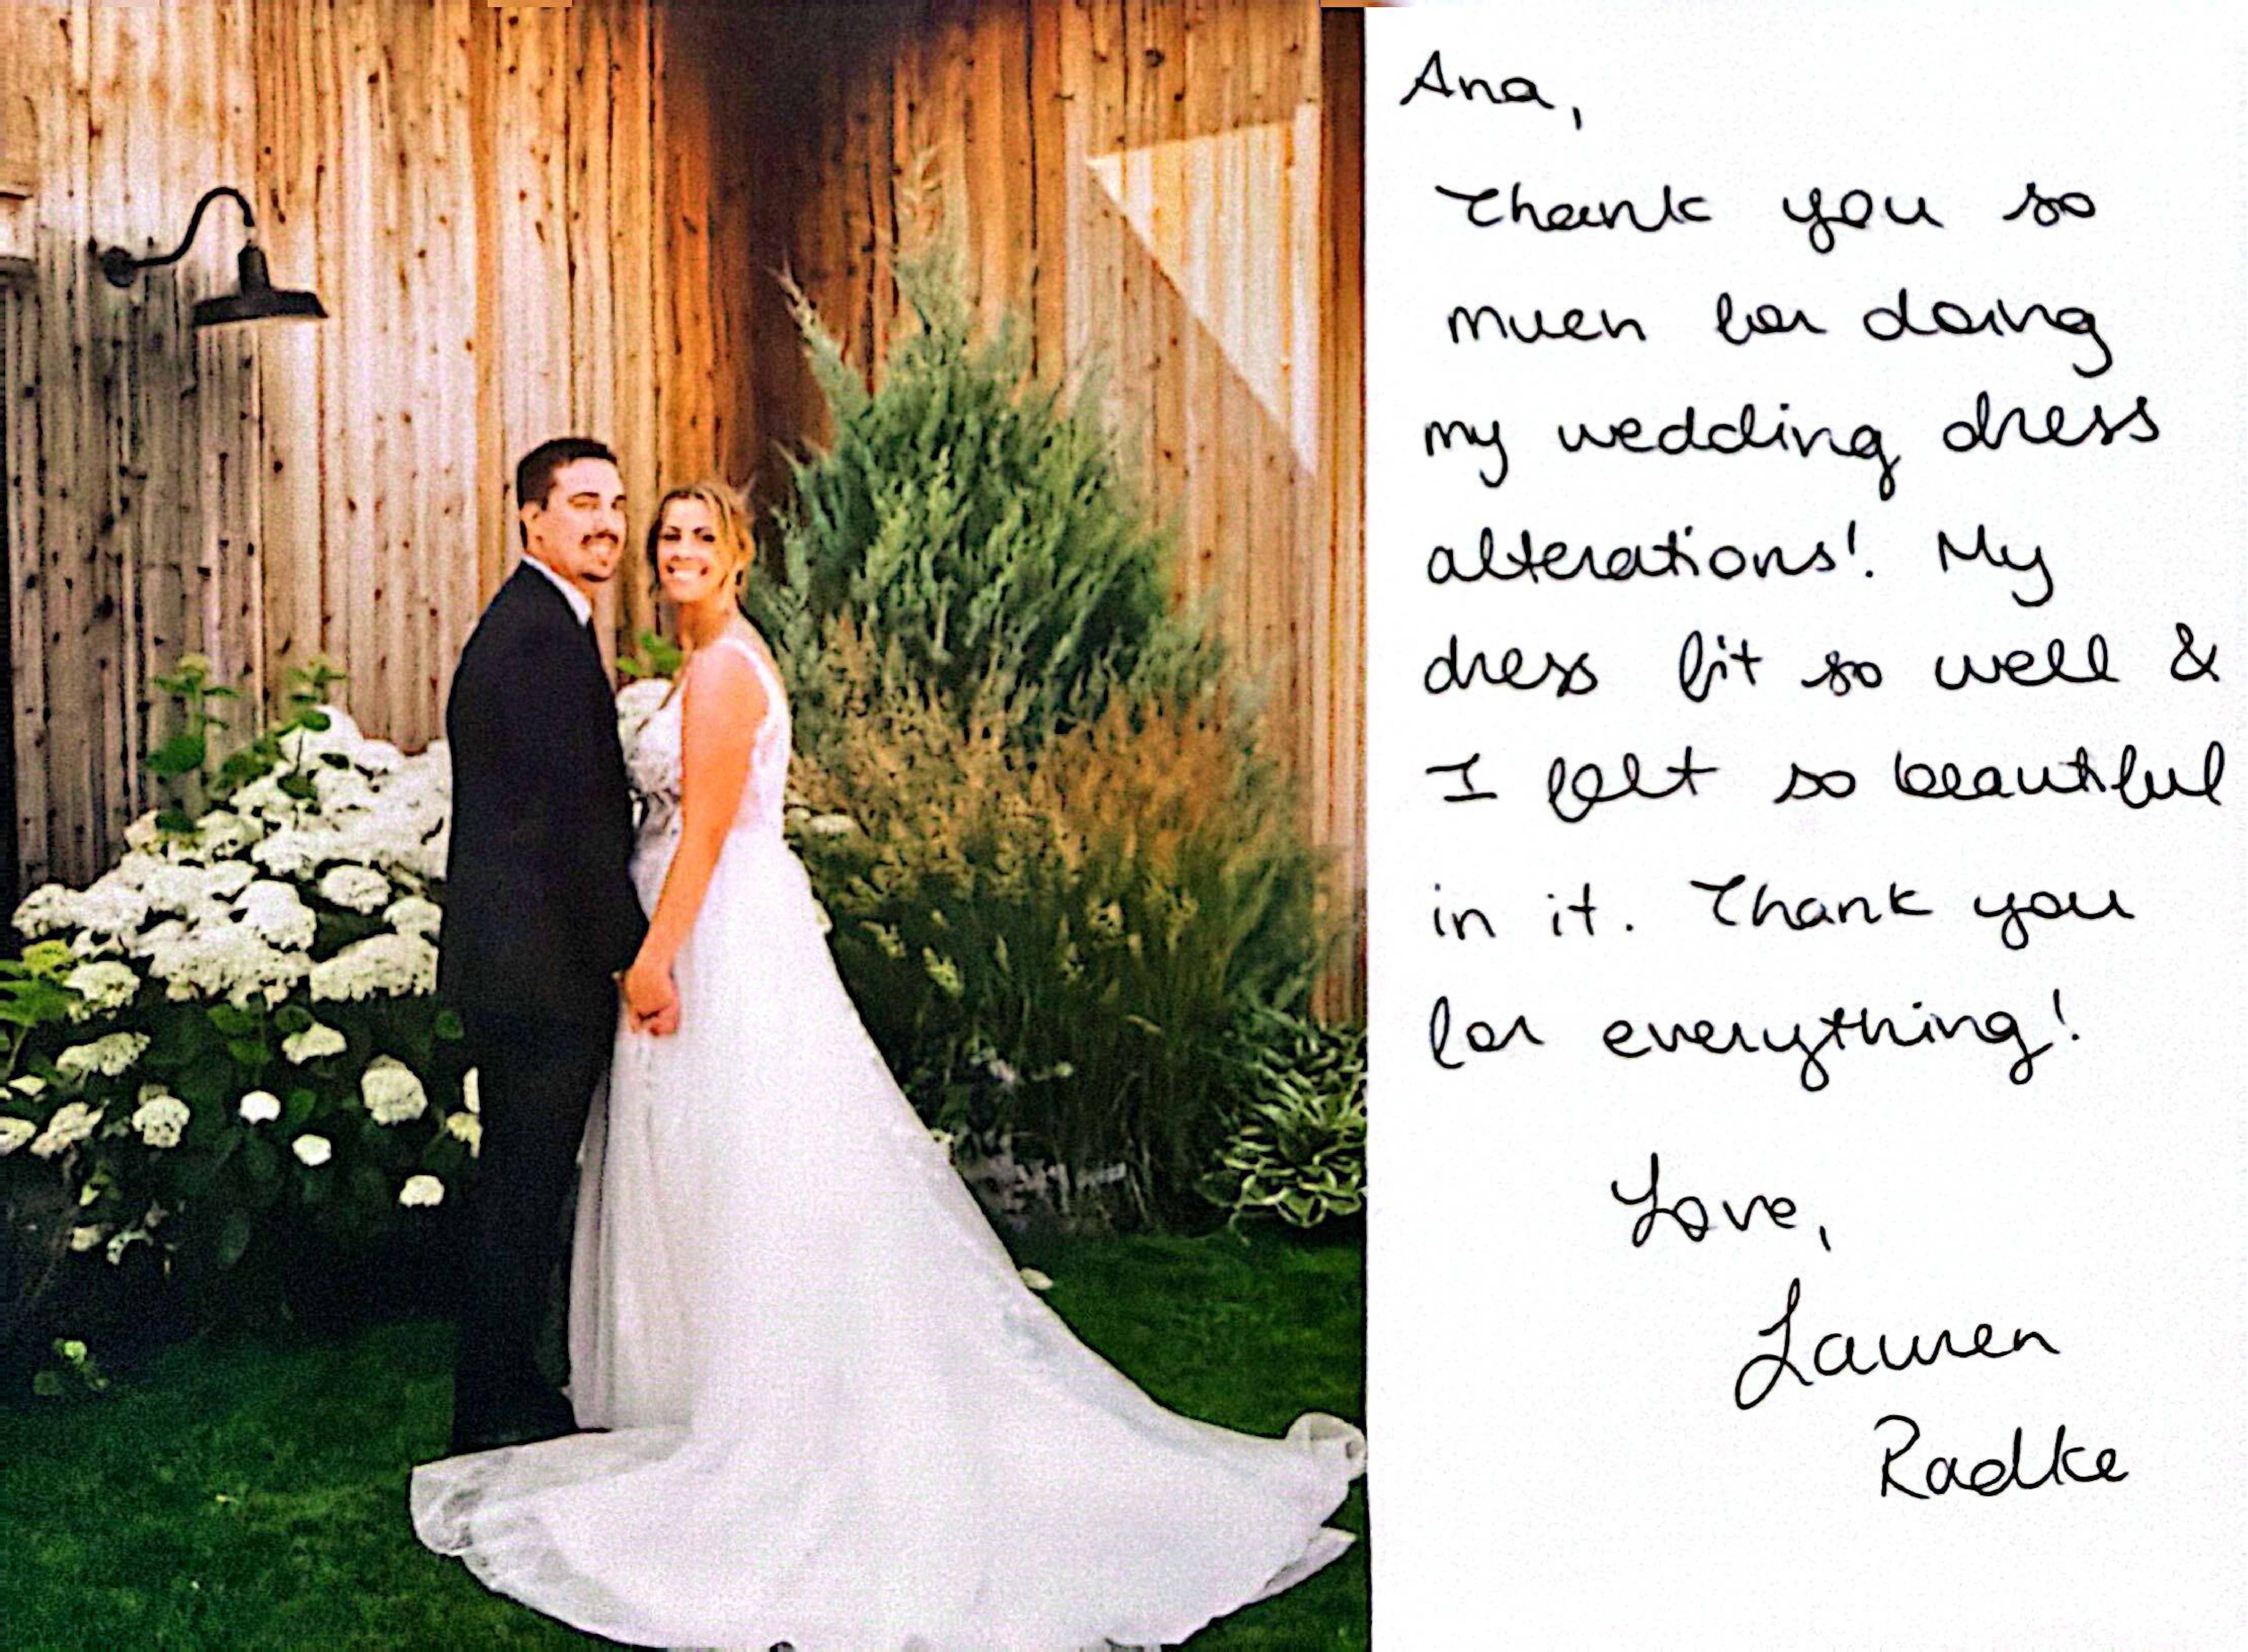 Ana,
Thank you so
much for doing
my wedding dress
alterations! My
dress fit so well &
I felt so beautiful
in it. Thank you
for everything!
Love,
Lauren
Radke